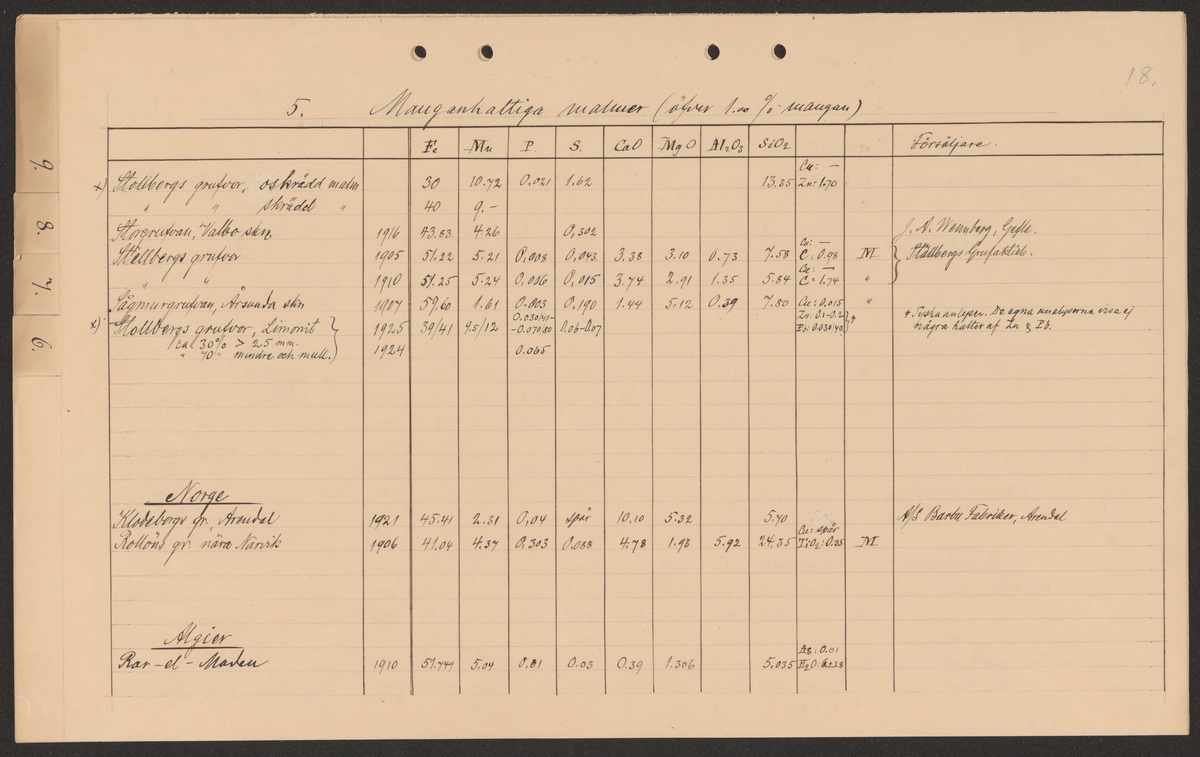 18.
5. Manganhaltiga malmer (öfver 1.00 % mangan)
Fe Mn P. S. CaO MgO Al2O3 SiO2 Försäljare.
Cu: —
x) Stollbergs grufvor, oskrädd malm 30 10.72 0.021 1.62 13.35 Zn: 1.70
" " skrädd " 40 9.–
Storgrufvan, Valbo skn 1916 43.83 4.26 0,302 J. A. Wennberg, Gefle.
Cu: —
Ställbergs grufvor 1905 51.22 5.21 0,008 0.043 3.38 3.10 0.73 7.58 C: 0.98 M Ställbergs Grufaktieb.
Cu: —
" " 1910 51.25 5.24 0,006 0,015 3.74 2.91 1.35 5.84 C: 1.74 "
Lågmurgrufvan, Årsunda skn 1907 59.60 1.61 0.003 0.190 1.44 5.12 0.39 7.80 Cu: 0.015 "
x) Stollbergs grufvor, Limonit 1925 39/41 9.5/12 0.030/40 -0.070/80 0.06-0.07 Zn: 0.1-0.2 Pb: 0.030-40 + + Tyska analyser. De egna analyserna visa ej
några halter af Zn & Pb.
(ca 30% > 25 mm.
" 70" mindre och mull.) 1924 0.065
Norge
Klodebergs gr. Arendal 1921 45.41 2.31 0,04 spår 10.10 5.32 5.70 A/S Barbu Fabriker, Arendal
Cu: spår
Rollöns gr. nära Narvik 1906 41.04 4.37 0.303 0.088 4.78 1.98 5.92 24.35 TiO2: 0.35 M
Algier
As: 0.01
Rar-el-Maden 1910 51.744 5.04 0.01 0.03 0.39 1.306 5.035 H2O:
9.
8.
7.
6.